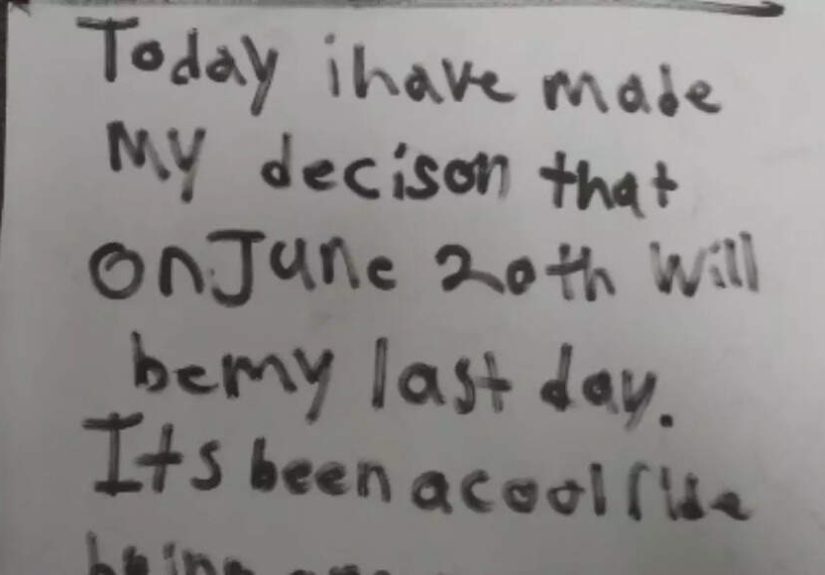 Today i have made
My decison that
On June 20th will
be my last day.
Its been a cool ride
being